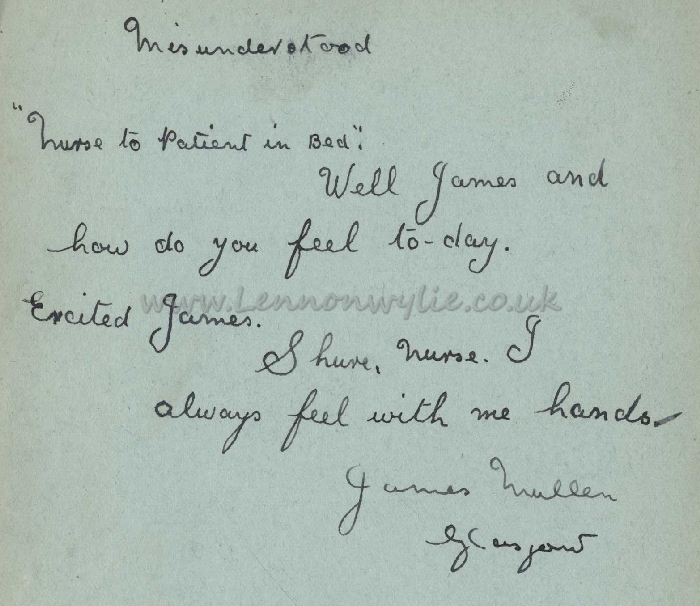 Misunderstood
"Nurse to Patient in Bed":
Well James and
how do you feel to-day.
www.Lennonwylie.co.uk
Excited James.
Shure, nurse. I
always feel with me hands
James Mullen
Glasgow